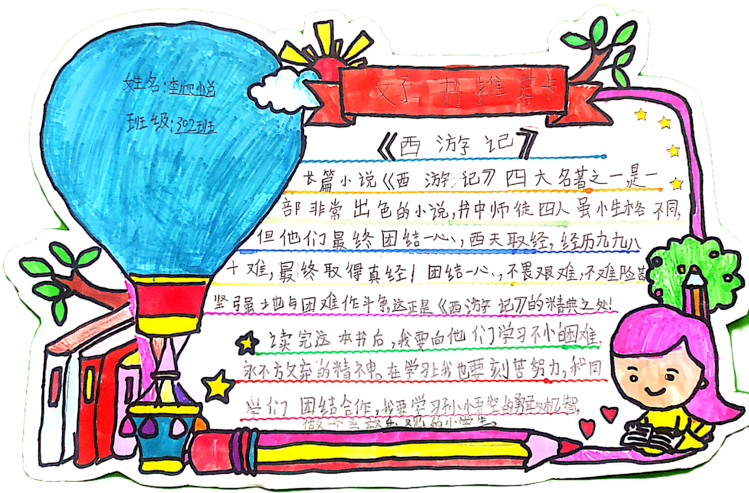 姓名:李欣悦
班级:302班
好书推荐卡
《西游记》
长篇小说《西游记》四大名著之一是一
部非常出色的小说,书中师徒四人虽小性格不同,
但他们最终团结一心,西天取经,经历九九八
十难,最终取得真经!团结一心,不畏艰难,不难险
坚强土地与困难作斗争,这正是《西游记》的精典之处!
读完这本书后,我要向他们学习不小困难,
永不放弃的精神。在学习上我也要刻苦努力,和同
学们团结合作,我要学习孙小悟空的勇敢机智,
做个乐观的小学生